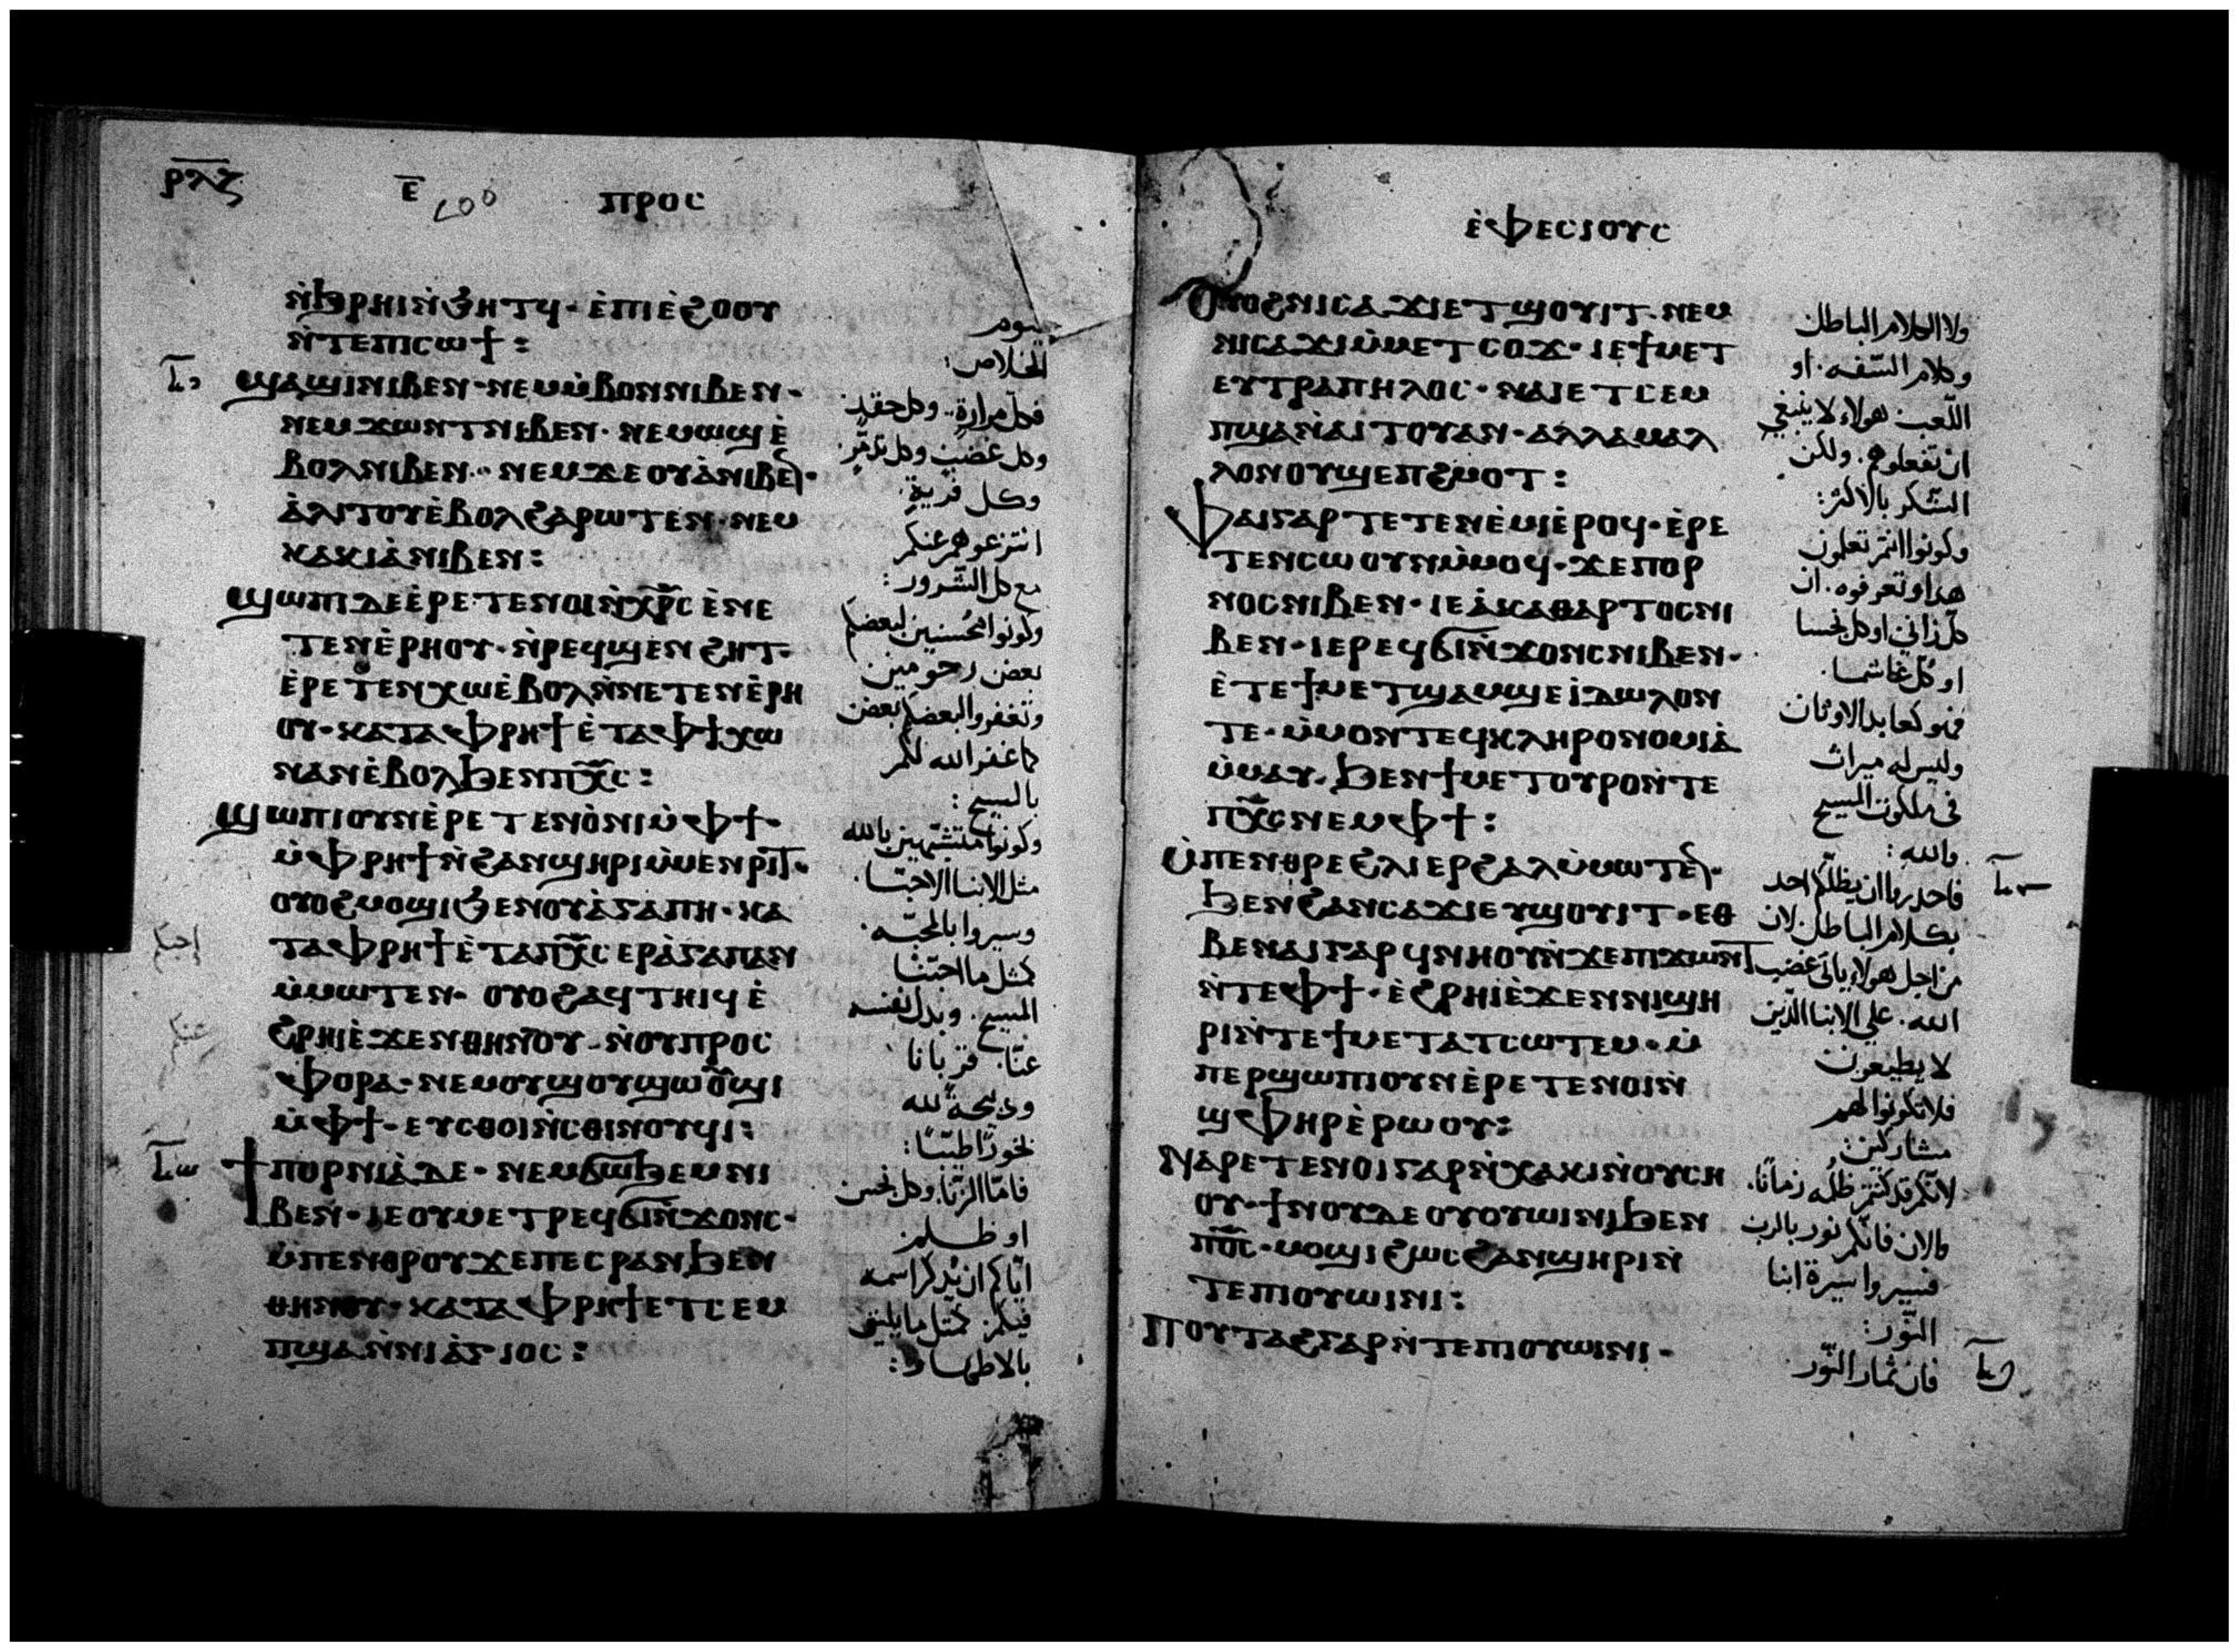 ⲣⲗⲍ
ⲉ̅
ⲡⲣⲟⲥ
ⲛ̀ϧⲣⲏⲓⲛ̀ϧⲏⲧϥ· ⲉ̀ⲡⲓⲉ̀ϩⲟⲟⲩ
ⲛ̀ⲧⲉⲡⲓⲥⲱϯ:
ϣⲁϣⲓⲛⲓⲃⲉⲛ· ⲛⲉⲙⲙ̀ⲃⲟⲛⲛⲓⲃⲉⲛ·
ⲛⲉⲙϫⲱⲛⲧⲛⲓⲃⲉⲛ· ⲛⲉⲙⲱϣⲉ̀
ⲃⲟⲗⲛⲓⲃⲉⲛ·· ⲛⲉⲙϫⲉⲟⲩⲁ̀ⲛⲓⲃⲉ̅·
ⲁ̀ⲗⲓⲧⲟⲩⲉ̀ⲃⲟⲗϩⲁⲣⲱⲧⲉⲛ· ⲛⲉⲙ
ⲕⲁⲕⲓⲁ̀ⲛⲓⲃⲉⲛ:
ϣⲱⲡⲓⲇⲉⲉ̀ⲣⲉⲧⲉⲛⲟⲓⲛ̀ⲭ̅ⲣ̅ⲥ ⲉ̀ⲛⲉ
ⲧⲉⲛⲉ̀ⲣⲏⲟⲩ· ⲛ̀ⲣⲉϥϣⲉⲛϩⲏⲧ·
ⲉ̀ⲣⲉⲧⲉⲛⲭⲱⲉ̀ⲃⲟⲗⲛ̀ⲛⲉⲧⲉⲛⲉ̀ⲣⲏ
ⲟⲩ· ⲕⲁⲧⲁⲫⲣⲏϯⲉ̀ⲧⲁⲫϯⲭⲱ
ⲛⲁⲛⲉ̀ⲃⲟⲗϧⲉⲛⲡⲭ̅ⲥ:
ϣⲱⲡⲓⲟⲩⲛⲉ̀ⲣⲉⲧⲉⲛⲟ̀ⲛⲓⲙ̀ⲫϯ·
ⲙ̀ⲫⲣⲏϯⲛ̀ϩⲁⲛϣⲏⲣⲓⲙ̀ⲙⲉⲛⲣⲓϯ·
ⲟⲩⲟϩⲙⲟϣⲓϧⲉⲛⲟⲩⲁ̀ⲅⲁⲡⲏ· ⲕⲁ
ⲧⲁⲫⲣⲏϯⲉ̀ⲧⲁⲡⲭ̅ⲥ ⲉⲣⲁ̀ⲅⲁⲡⲁⲛ
ⲙ̀ⲙⲱⲧⲉⲛ· ⲟⲩⲟϩⲁϥⲧⲏⲓϥⲉ̀
ϩⲣⲏⲓⲉ̀ϫⲉⲛⲑⲏⲛⲟⲩ· ⲛ̀ⲟⲩⲡⲣⲟⲥ
ⲫⲟⲣⲁ· ⲛⲉⲙⲟⲩϣⲟⲩϣⲱⲟⲩϣⲓ
ⲙ̀ⲫϯ· ⲉⲩⲥⲑⲟⲓⲛ̀ⲥⲑⲓⲛⲟⲩϥⲓ:
ϯⲡⲟⲣⲛⲓⲁ̀ⲇⲉ· ⲛⲉⲙϭⲱϧⲉⲙⲛⲓ
ⲃⲉⲛ· ⲓⲉⲟⲩⲙⲉⲧⲣⲉϥϭⲓⲛ̀ϫⲟⲛⲥ·
ⲙ̀ⲡⲉⲛⲑⲣⲟⲩϫⲉⲡⲉⲥⲣⲁⲛϧⲉⲛ
ⲑⲏⲛⲟⲩ· ⲕⲁⲧⲁⲫⲣⲏϯⲉⲧⲥⲉⲙ
ⲡϣⲁⲛ̀ⲛⲓⲁ̀ⲅⲓⲟⲥ:
ليوم
الخلاص:
فكل مرارةٍ. وكل حقدٍ
وكل غضبٍ وكل تذمّرٍ
وكل فريةٍ
انتزعوهم عنكم
مع كل الشرور:
وكونوا محُسنين لبعضكم
بعض رحومين
وتغفروا لبعضكم بعض
كما غفر الله لكم
بالمسيح:
وكونوا متشبّهين بالله
مثل الابنا الاحبّا
وسيروا بالمحبّه
كمثل ما احبّنا
المسيح. وبدل نفسه
عنّا. قربانا
وذبيحةً لله
بخورًا طيّبًا:
فامّا الزّنا وكل نجس
او ظلم
ايّاكم ان يذكر اسمه
فيكم. كمثل ما يليق
بالاطهار:
ⲉ̀ⲫⲉⲥⲓⲟⲩⲥ
ⲟⲩⲟϩⲛⲓⲥⲁϫⲓⲉⲧϣⲟⲩⲓⲧ· ⲛⲉⲙ
ⲛⲓⲥⲁϫⲓⲙ̀ⲙⲉⲧⲥⲟϫ· ⲓⲉϯⲙⲉⲧ
ⲉⲩⲧⲣⲁⲡⲏⲗⲟⲥ· ⲛⲁⲓⲉⲧⲥⲉⲙ
ⲡϣⲁⲛ̀ⲁⲓⲧⲟⲩⲁⲛ· ⲁⲗⲗⲁⲙⲁⲗ
ⲗⲟⲛⲟⲩϣⲉⲡϩⲙⲟⲧ:
ⲫⲁⲓⲅⲁⲣⲧⲉⲧⲉⲛⲉ̀ⲙⲓⲉ̀ⲣⲟϥ· ⲉ̀ⲣⲉ
ⲧⲉⲛⲥⲱⲟⲩⲛⲙ̀ⲙⲟϥ· ϫⲉⲡⲟⲣ
ⲛⲟⲥⲛⲓⲃⲉⲛ· ⲓⲉⲁ̀ⲕⲁⲑⲁⲣⲧⲟⲥⲛⲓ
ⲃⲉⲛ· ⲓⲉⲣⲉϥϭⲓⲛ̀ϫⲟⲛⲥⲛⲓⲃⲉⲛ·
ⲉ̀ⲧⲉϯⲙⲉⲧϣⲁⲙϣⲉⲓ̀ⲇⲱⲗⲟⲛ
ⲧⲉ· ⲙ̀ⲙⲟⲛⲧⲉϥⲕⲗⲏⲣⲟⲛⲟⲙⲓⲁ̀
ⲙ̀ⲙⲁⲩ· ϧⲉⲛϯⲙⲉⲧⲟⲩⲣⲟⲛ̀ⲧⲉ
ⲡⲭ̅ⲥⲛⲉⲙⲫϯ:
ⲙ̀ⲡⲉⲛⲑⲣⲉϩⲗⲓⲉⲣϩⲁⲗⲙ̀ⲙⲱⲧⲉ̅·
ϧⲉⲛϩⲁⲛⲥⲁϫⲓⲉⲩϣⲟⲩⲓⲧ· ⲉⲑ
ⲃⲉⲛⲁⲓⲅⲁⲣϥⲛⲏⲟⲩⲛ̀ϫⲉⲡϫⲱⲛⲧ
ⲛ̀ⲧⲉⲫϯ· ⲉ̀ϩⲣⲏⲓⲉ̀ϫⲉⲛⲛⲓϣⲏ
ⲣⲓⲛ̀ⲧⲉϯⲙⲉⲧⲁⲧⲥⲱⲧⲉⲙ· ⲙ̀
ⲡⲉⲣϣⲱⲡⲓⲟⲩⲛⲉ̀ⲣⲉⲧⲉⲛⲟⲓⲛ̀
ϣⲫⲏⲣⲉ̀ⲣⲱⲟⲩ:
ⲛⲁⲣⲉⲧⲉⲛⲟⲓⲅⲁⲣⲛ̀ⲭⲁⲕⲓⲛ̀ⲟⲩⲥⲏ
ⲟⲩ· ϯⲛⲟⲩⲇⲉⲟⲩⲟⲩⲱⲓⲛⲓϧⲉⲛ
ⲡⲟ̅ⲥ· ⲙⲟϣⲓϩⲱⲥϩⲁⲛϣⲏⲣⲓⲛ̀
ⲧⲉⲡⲓⲟⲩⲱⲓⲛⲓ:
ⲡⲟⲩⲧⲁϩⲅⲁⲣⲛ̀ⲧⲉⲡⲓⲟⲩⲱⲓⲛⲓ·
ولا الكلام الباطل
وكلام السّفه. او
اللّعب هولاء لا ينبغي
ان تفعلوهم. ولكن
الشّكر بالاكثر:
وكونوا انتم تعلمون
هذا وتعرفوه. ان
كلّ زاني او كل نجسا
او كلّ غاشما.
فهو كعابد الاوثان
وليس له ميراث
في ملكوت المسيح
والله:
فاحدروا ان يظلّكم احد
بكلام الباطل. لان
من اجل هولاء ياتي غضب
الله. علي الابنا الّذين
لا يطيعون
فلا تكونوا لهم
مشاركين:
لانّكم قد كنتم ظلُمه زمانًا.
والان فانّكم نور بالرب
فسيروا سيرة ابنا
النّور:
فان ثمار النّور